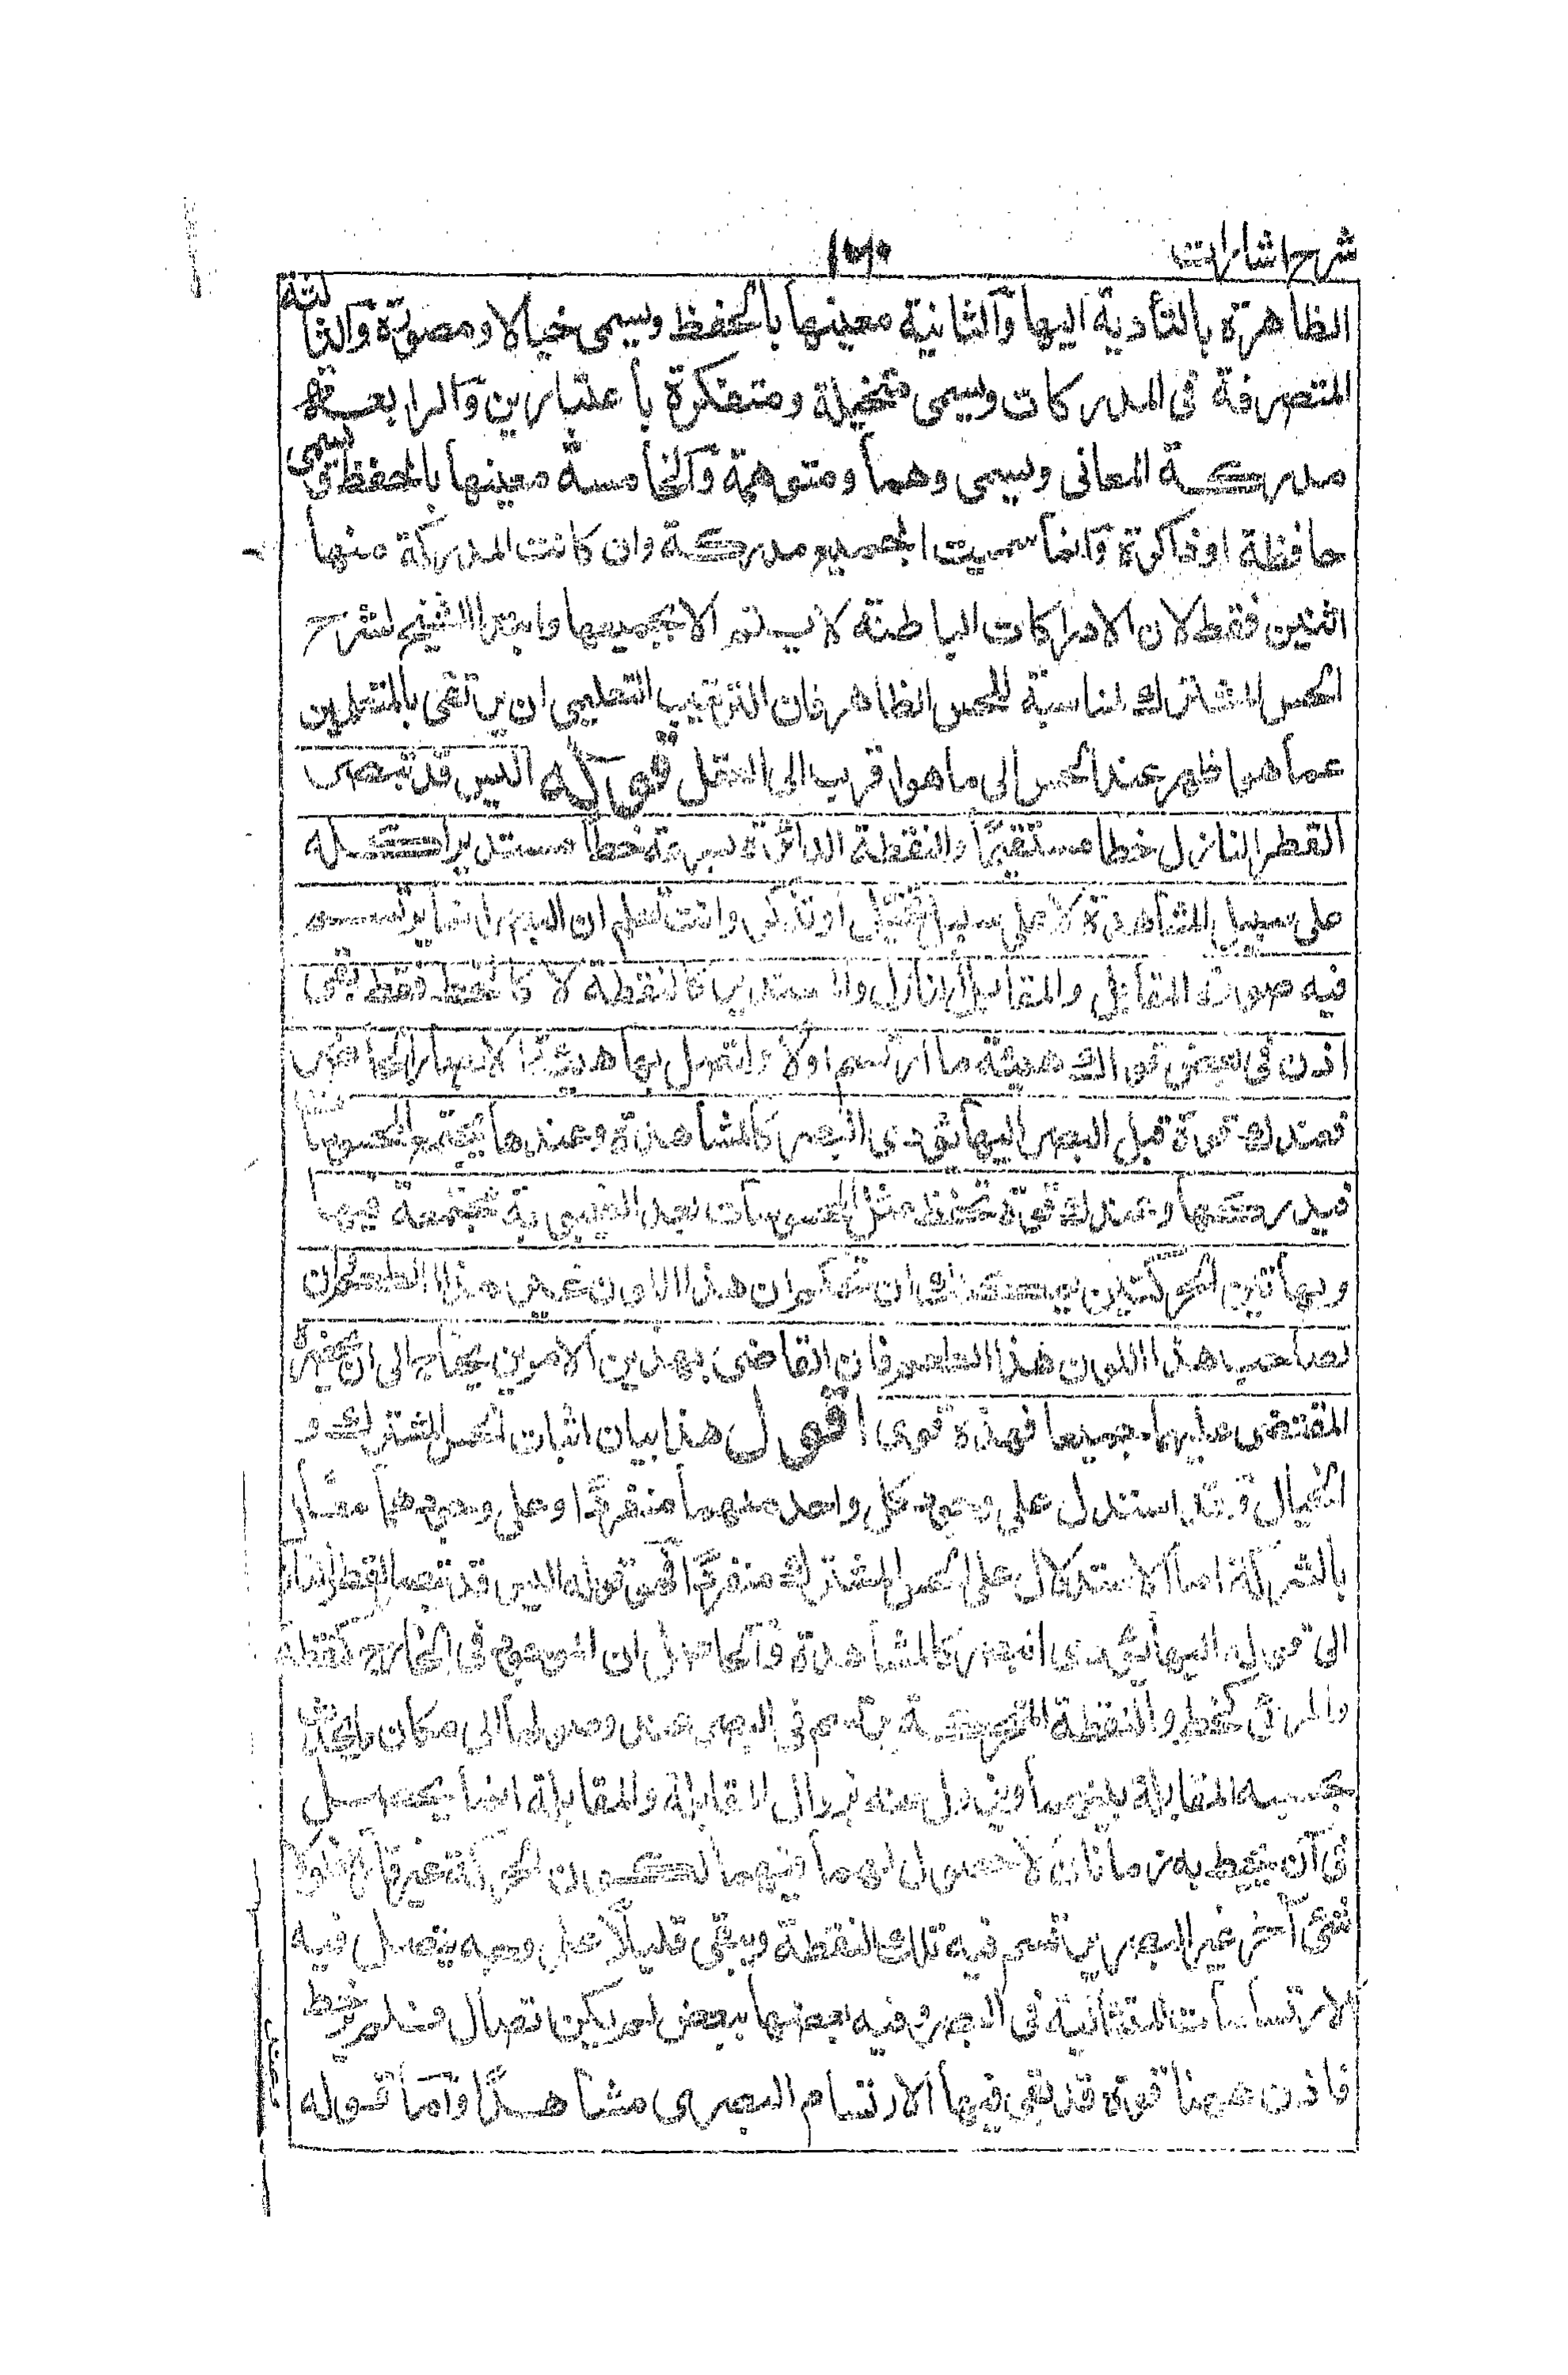 شرح اشارات ١٦٠
الظاهرة بالتأدية اليها والثانية معينها بالحفظ ويسمى خيالا ومصورة والثالثة
المتصرفة فى المدركات ويسمى متخيلة ومتفكرة باعتبارين والرابعة
مدركة المعانى ويسمى وهما ومتوهمة والخامسة معينها بالحفظ ويسمى
حافظة او ذاكرة وانما سميت الجميع مدركة وان كانت المدركة منها
اثنين فقط لان الادراكات الباطنة لا يتم الا بجميعها وابتدا الشيخ بشرح
الحس المشترك لمناسبة للحس الظاهر فان الترتيب التعليمى ان يرتقى بالمتعلمين
عما هو اظهر عند الحس الى ما هو اقرب الى العقل قوله اليس قد تبصر
القطر النازل خطا مستقيما والنقطة الدائرة بسرعة خطا مستديرا كله
على سبيل المشاهدة لا على سبيل تخيل او تذكر وانت تعلم ان البصر انما يرتسم
فيه صورة المقابل والمقابل النازل والمستدير كالنقطة لا كالخط فقد بقى
اذن فى بعض قواك هيئة ما ارتسم اولا واتصل بها هيئة الابصار الحاضر
فعندك قوة قبل البصر اليها يؤدى البصر كالمشاهدة وعندها يجتمع المحسوسات
فيدركها وعندك قوة تحفظ مثل المحسوسات بعد الغيبوبة مجتمعة فيها
وبهاتين القوتين يمكنك ان تحكم ان هذا اللون غير هذا الطعم وان
لصاحب هذا اللون هذا الطعم فان القاضى بهذين الامرين يحتاج الى ان يحضره
المقتضى عليهما جميعا فهذه قوى اقول هذا بيان اثبات الحس المشترك و
الخيال وقد استدل على وجود كل واحد منهما منفردا وعلى وجودهما معا
بالشركة اما الاستدلال على الحس المشترك منفردا فهو قوله اليس قد تبصر القطر النازل
الى قوله اليها يؤدى البصر كالمشاهدة والحاصل ان الموجود فى الخارج كنقطة
والمرئى كخط والنقطة المتحركة يرتسم فى البصر عند وصولها الى مكان
بحسبه المقابلة بينهما ويزول عنه بزوال المقابلة والمقابلة انما يحصل
فى آن يحيط به زمانان لا حصول لهما فيهما لكون الحركة غير قارة فلولا
شئ آخر غير البصر يرتسم فيه تلك النقطة ويبقى قليلا على وجه يتصل فيه
الارتسامات المتتالية فى البصر وفيه بعضها ببعض لم يكن اتصال فلم ير خط
فاذن ههنا قوة قد بقى فيها الارتسام البصرى مشاهدا واما قوله